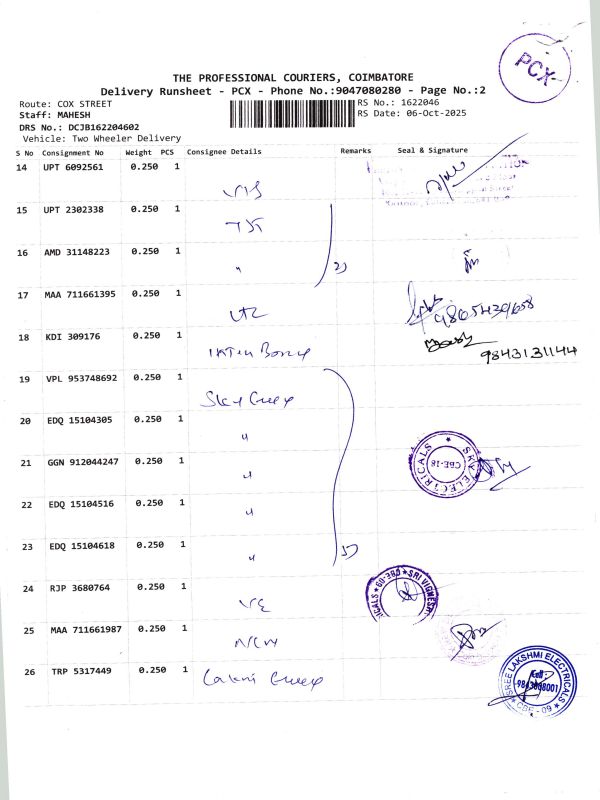 PCX
THE PROFESSIONAL COURIERS, COIMBATORE
Delivery Runsheet - PCX - Phone No.:9047080280 - Page No.:2
Route: COX STREET
RS No.: 1622046
Staff: MAHESH
RS Date: 06-Oct-2025
DRS No.: DCJB162204602
Vehicle: Two Wheeler Delivery
S No Consignment No Weight PCS Consignee Details Remarks Seal & Signature
14 UPT 6092561 0.250 1
15 UPT 2302338 0.250 1
16 AMD 31148223 0.250 1 " 2)
17 MAA 711661395 0.250 1
18 KDI 309176 0.250 1
9843131144
19 VPL 953748692 0.250 1
20 EDQ 15104305 0.250 1 "
21 GGN 912044247 0.250 1 "
SKY ELECTRICALS CBE-18
22 EDQ 15104516 0.250 1 "
23 EDQ 15104618 0.250 1 " 5)
24 RJP 3680764 0.250 1
SRI VIGNESH
25 MAA 711661987 0.250 1 New
26 TRP 5317449 0.250 1
SREE LAKSHMI ELECTRICALS Cell: CBE - 09